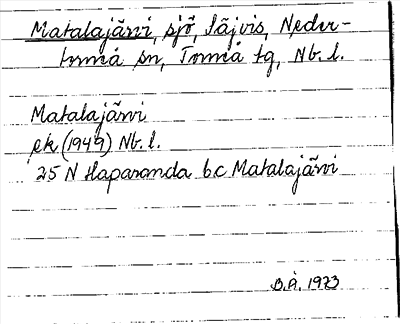 Matalajärvi, sjö, Säjvis, Neder-
torneå sn, Torneå tg, Nb. l.
Matalajärvi
ek (1949) Nb. l.
25 N Haparanda bc Matalajärvi
B.Å. 1973